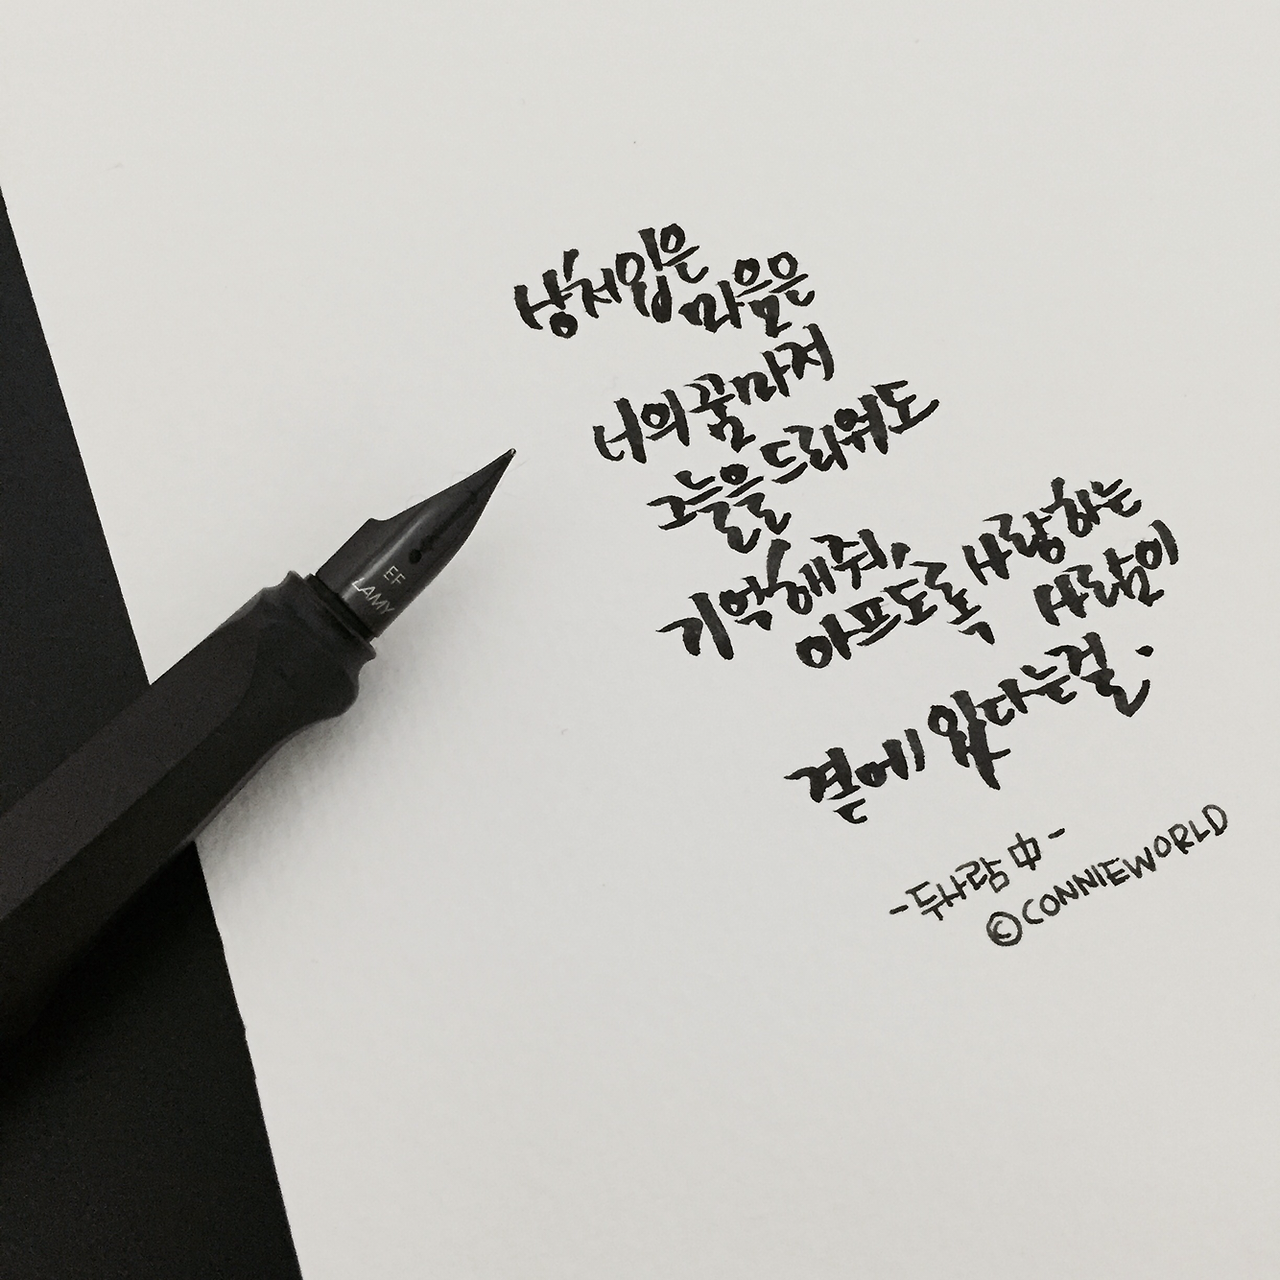 상처입은
마음은
너의 꿈마저
그늘을 드리워도
기억해줘,
아프도록 사랑하는
사람이
곁에 있다는걸.
-두사람 中-
©CONNIEWORLD
EF
LAMY